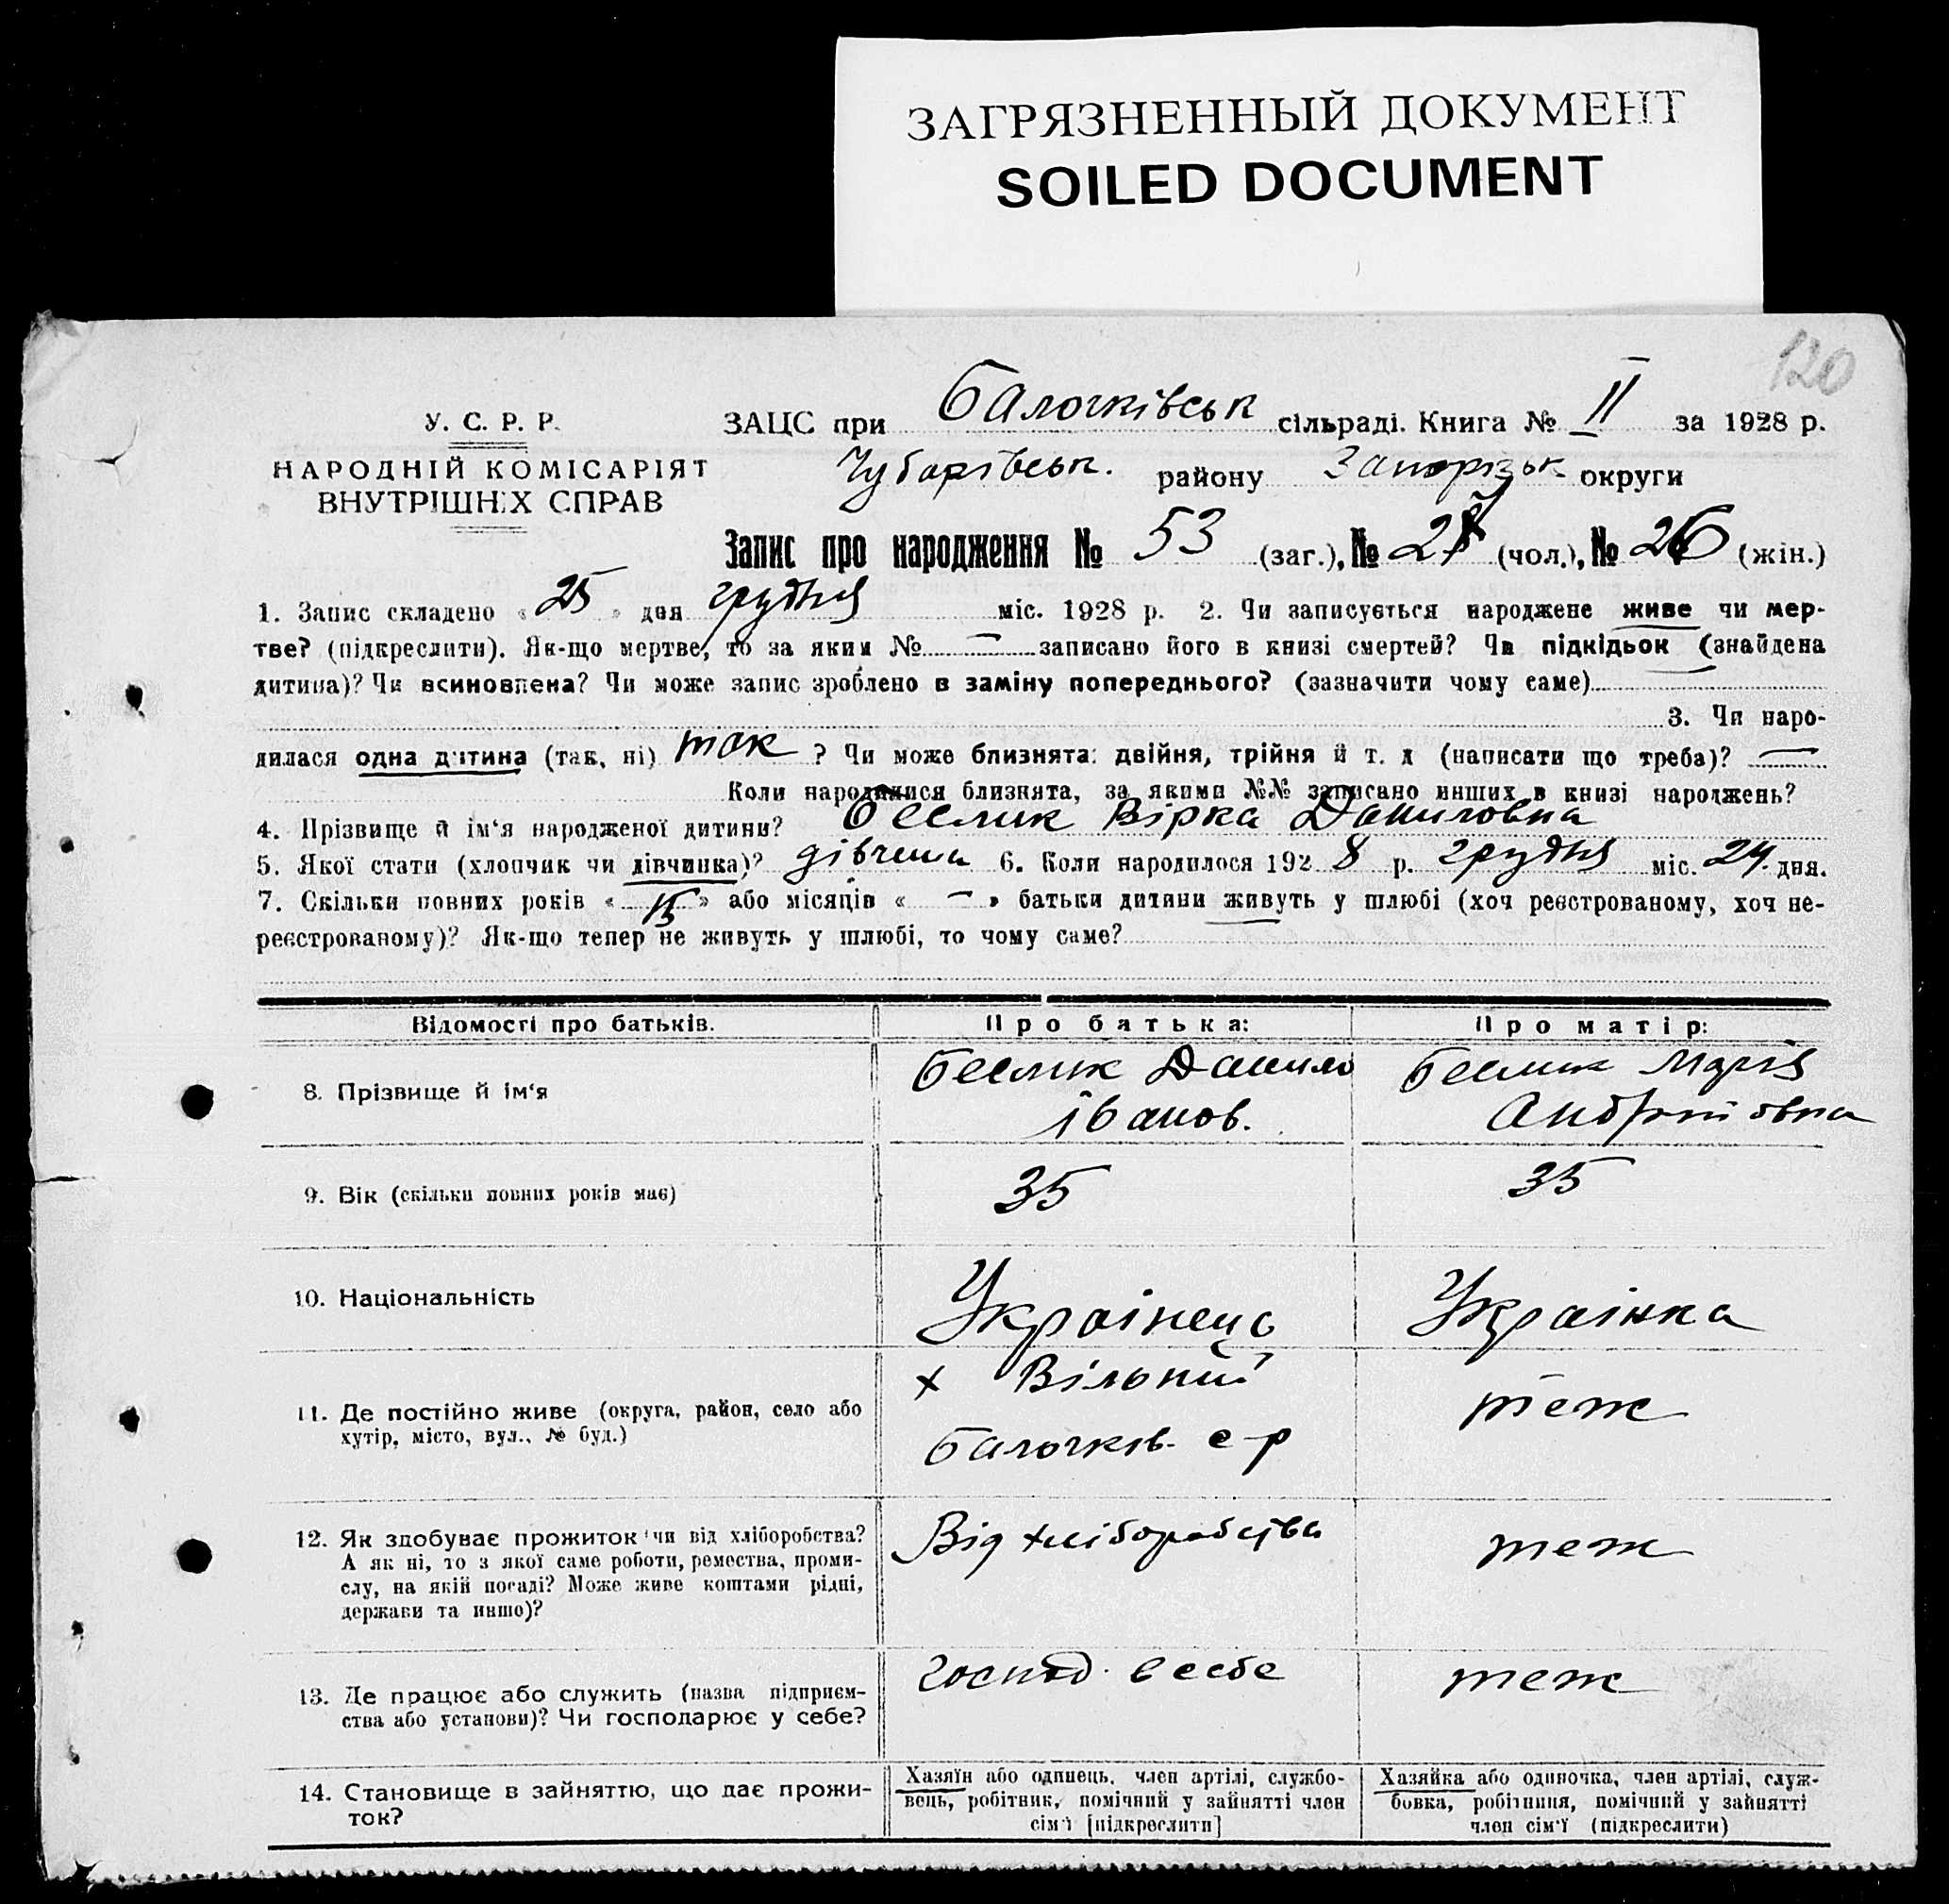 ЗАГРЯЗНЕННЫЙ ДОКУМЕНТ
SOILED DOCUMENT
120
У. С. Р. Р.
НАРОДНІЙ КОМІСАРІЯТ
ВНУТРІШНІХ СПРАВ
ЗАЦС при Балочківськ сільраді. Книга № II за 1928 р.
Чубарівськ. району Запорізьк округи
Запис про народження № 53 (заг.), № (чол.), № 26 (жін.)
1. Запис складено « 25 » дня грудня міс. 1928 р. 2. Чи записується народжене живе чи мер-
тве? (підкреслити). Як-що мертве, то за яким № — записано його в книзі смертей? Чи підкідьок (знайдена
дитина)? Чи всиновлена? Чи може запис зроблено в заміну попереднього? (зазначити чому саме)
3. Чи наро-
дилася одна дитина (так, ні) так ? Чи може близнята: двійня, трійня й т. д (написати що треба)? —
Коли народилися близнята, за якими №№ записано инших в книзі народжень?
4. Прізвище й ім‘я народженої дитини? Беслик Вірка Даниловна
5. Якої стати (хлопчик чи дівчинка)? дівчина 6. Коли народилося 192 8 р. грудня міс. 24. дня.
7. Скільки повних років « 15 » або місяців « — » батьки дитини живуть у шлюбі (хоч реєстрованому, хоч не-
реєстрованому)? Як-що тепер не живуть у шлюбі, то чому саме?
Відомості про батьків. Про батька: Про матір:
8. Прізвище й ім‘я
Беслик Данило
Іванов.
Беслик Марія
Андріївна
9. Вік (скільки повних років має) 35 35
10. Національність Українець Українка
11. Де постійно живе (округа, район, село або
хутір, місто, вул., № буд.)
х Вільний
Балочків. с-р
теж
12. Як здобуває прожиток чи від хліборобства?
А як ні, то з якої саме роботи, ремества, проми-
слу, на якій посаді? Може живе коштами рідні,
держави та инше)?
Від хліборобства
теж
13. Де працює або служить (назва підприєм-
ства або установи)? Чи господарює у себе?
Господ. в себе
теж
14. Становище в зайняттю, що дає прожи-
ток?
Хазяїн або одинець, член артілі, службо-
вець, робітник, помічний у зайнятті член
сім‘ї [підкреслити]
Хазяйка або одиночка, член артілі, служ-
бовка, робітниця, помічний у зайнятті
член сім‘ї (підкреслити)